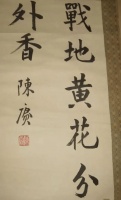 戰地黃花分
外香
陳賡